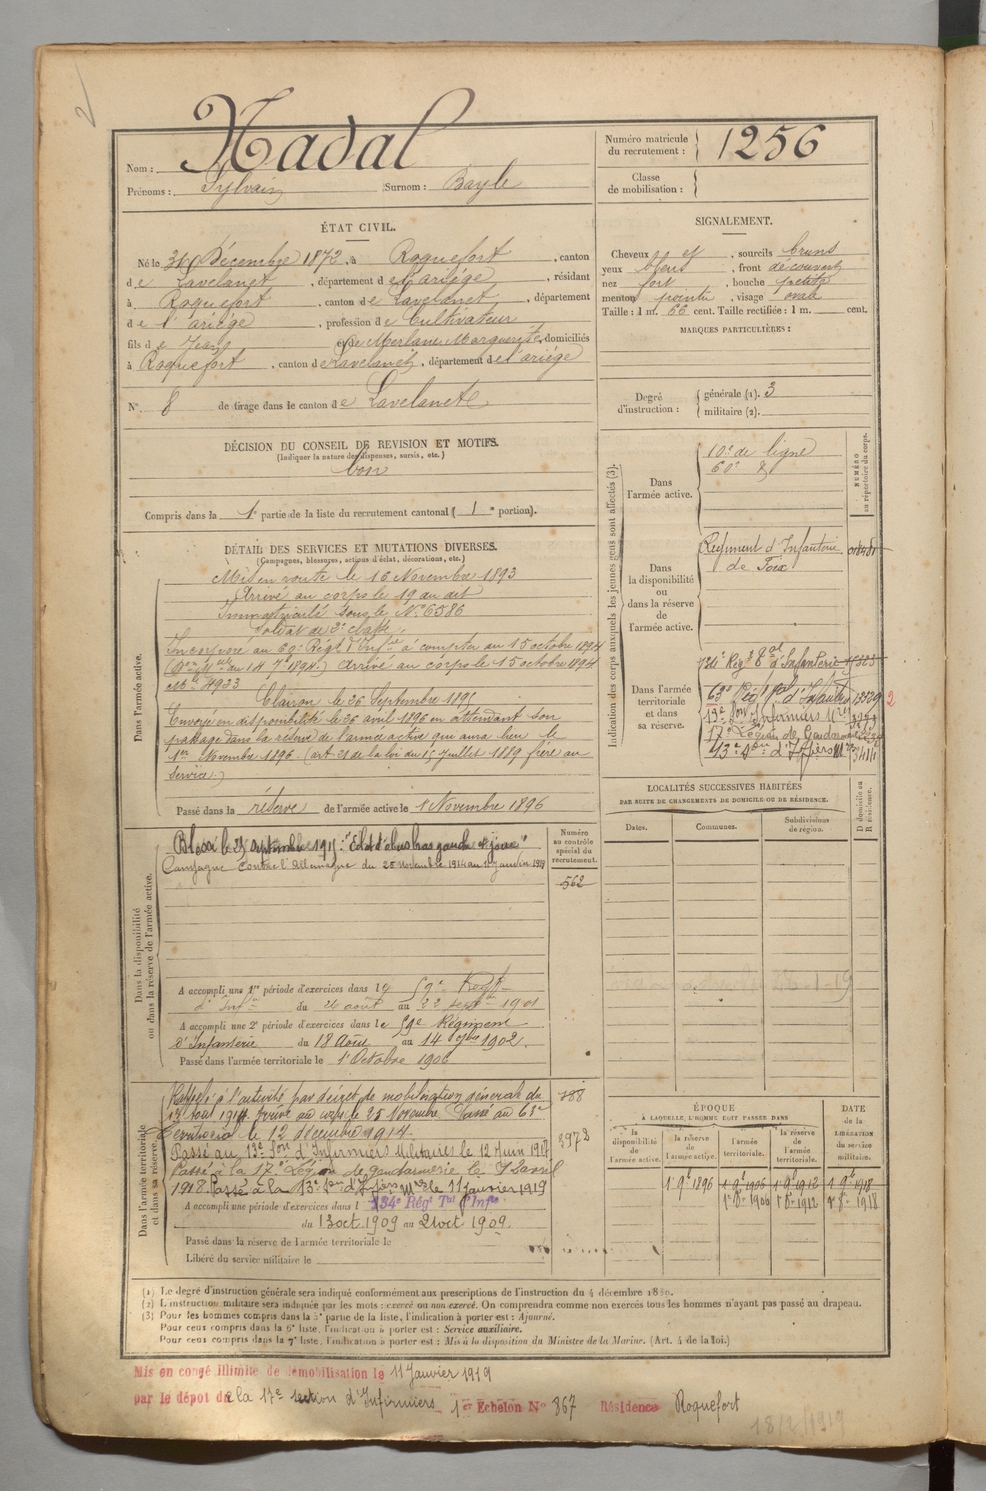 Nom : Nadal
Prénoms : Sylvain Surnom : Bayle
Numéro matricule du recrutement : 1256
Classe de mobilisation :
ÉTAT CIVIL.
Né le 31 Décembre 1872, à Roquefort, canton
de Lavelanet, département de l'ariège, résidant
à Roquefort, canton de Lavelanet, département
de l'ariège, profession de Cultivateur
fils de Jean et de Merlane Marguerite, domiciliés
à Roquefort, canton de Lavelanet, département de l'ariège
N° 8 de tirage dans le canton de Lavelanet
SIGNALEMENT.
Cheveux et, sourcils bruns
yeux bleus, front découvert
nez fort, bouche petite
menton pointu, visage ovale
Taille : 1 m. 66 cent. Taille rectifiée : 1 m. cent.
MARQUES PARTICULIÈRES :
Degré d'instruction :
générale (1). 3
militaire (2).
DÉCISION DU CONSEIL DE REVISION ET MOTIFS.
(Indiquer la nature des dispenses, sursis, etc.)
bon
Compris dans la 1e partie de la liste du recrutement cantonal (1e portion).
DÉTAIL DES SERVICES ET MUTATIONS DIVERSES.
(Campagnes, blessures, actions d'éclat, décorations, etc.)
Dans l'armée active.
Mis en route le 16 Novembre 1893
Arrivé au corps le 19 au dit
Immatriculé sous le N° 6586
Soldat de 2e classe
Incorporé au 60e Régt d'Infie à compter du 15 octobre 1894
arrivé au corps le 15 octobre 1894
4933
Clairon le 26 Septembre 1895
Envoyé en disponibilité le 26 avril 1896 en attendant son
passage dans la réserve de l'armée active qui aura lieu le
1er Novembre 1896. (art 21 de la loi du 15 Juillet 1889 frère au
service.)
Passé dans la réserve de l'armée active le 1 Novembre 1896
Indication des corps auxquels les jeunes gens sont affectés (3).
NUMÉRO au répertoire du corps.
Dans l'armée active.
10e de ligne
60e
Dans la disponibilité ou dans la réserve de l'armée active.
Régiment d'Infanterie
de Foix
Dans l'armée territoriale et dans sa réserve.
134e Regt d'Infanterie
63e
13e Infirmiers
17e Légion de Gendmie
13e
LOCALITÉS SUCCESSIVES HABITÉES
PAR SUITE DE CHANGEMENTS DE DOMICILE OU DE RÉSIDENCE.
Dates. Communes. Subdivisions de région. D domicile ou R résidence.
Dans la disponibilité ou dans la réserve de l'armée active.
Numéro au contrôle spécial du recrutement.
562
Blessé le 25 septembre 1915 : "Eclat d'obus bras gauche et joue"
Campagne contre l'Allemagne du 25 novembre 1914 au 11 janvier 1919
A accompli une 1re période d'exercices dans le 59e Regt
d'Infie du 26 août au 22 sept 1901
A accompli une 2e période d'exercices dans le 59e Régiment
d'Infanterie du 18 Août au 14 7bre 1902.
Passé dans l'armée territoriale le 1 Octobre 1906
Dans l'armée territoriale et dans sa réserve.
788
3972
Rappelé à l'activité par décret de mobilisation générale du
1er Aout 1914. Arrivé au corps le 25 Novembre. Passé au 63e
Territorial le 12 décembre 1914.
Passé au 13e Son d'Infirmiers Militaires le 12 Juin 1917
Passé à la 17e Légion de gendarmerie le 12 avril
1918. Passé à la 13e Son d'Infers Mres le 11 janvier 1919
A accompli une période d'exercices dans l 134e Régt Tal d'Infie
du 13 oct 1909 au 21 oct 1909.
Passé dans la réserve de l'armée territoriale le
Libéré du service militaire le
ÉPOQUE
À LAQUELLE L'HOMME DOIT PASSER DANS
la disponibilité de l'armée active. la réserve de l'armée active. l'armée territoriale. la réserve de l'armée territoriale.
DATE de la LIBÉRATION du service militaire.
1 9bre 1896 1 9bre 1906 1 9bre 1912 1 9bre 1918
1 8bre 1906 1 8bre 1912 1 8bre 1918
(1) Le degré d'instruction générale sera indiqué conformément aux prescriptions de l'instruction du 4 décembre 1889.
(2) L'instruction militaire sera indiquée par les mots : exercé ou non exercé. On comprendra comme non exercés tous les hommes n'ayant pas passé au drapeau.
(3) Pour les hommes compris dans la 5e partie de la liste, l'indication à porter est : Ajourné.
Pour ceux compris dans la 6e liste, l'indication à porter est : Service auxiliaire.
Pour ceux compris dans la 7e liste, l'indication à porter est : Mis à la disposition du Ministre de la Marine. (Art. 4 de la loi.)
Mis en congé illimité de démobilisation le 11 Janvier 1919
par le dépot de la 17e section d'Infirmiers 1er Echelon N° 867 Résidence Roquefort
18/2/1919